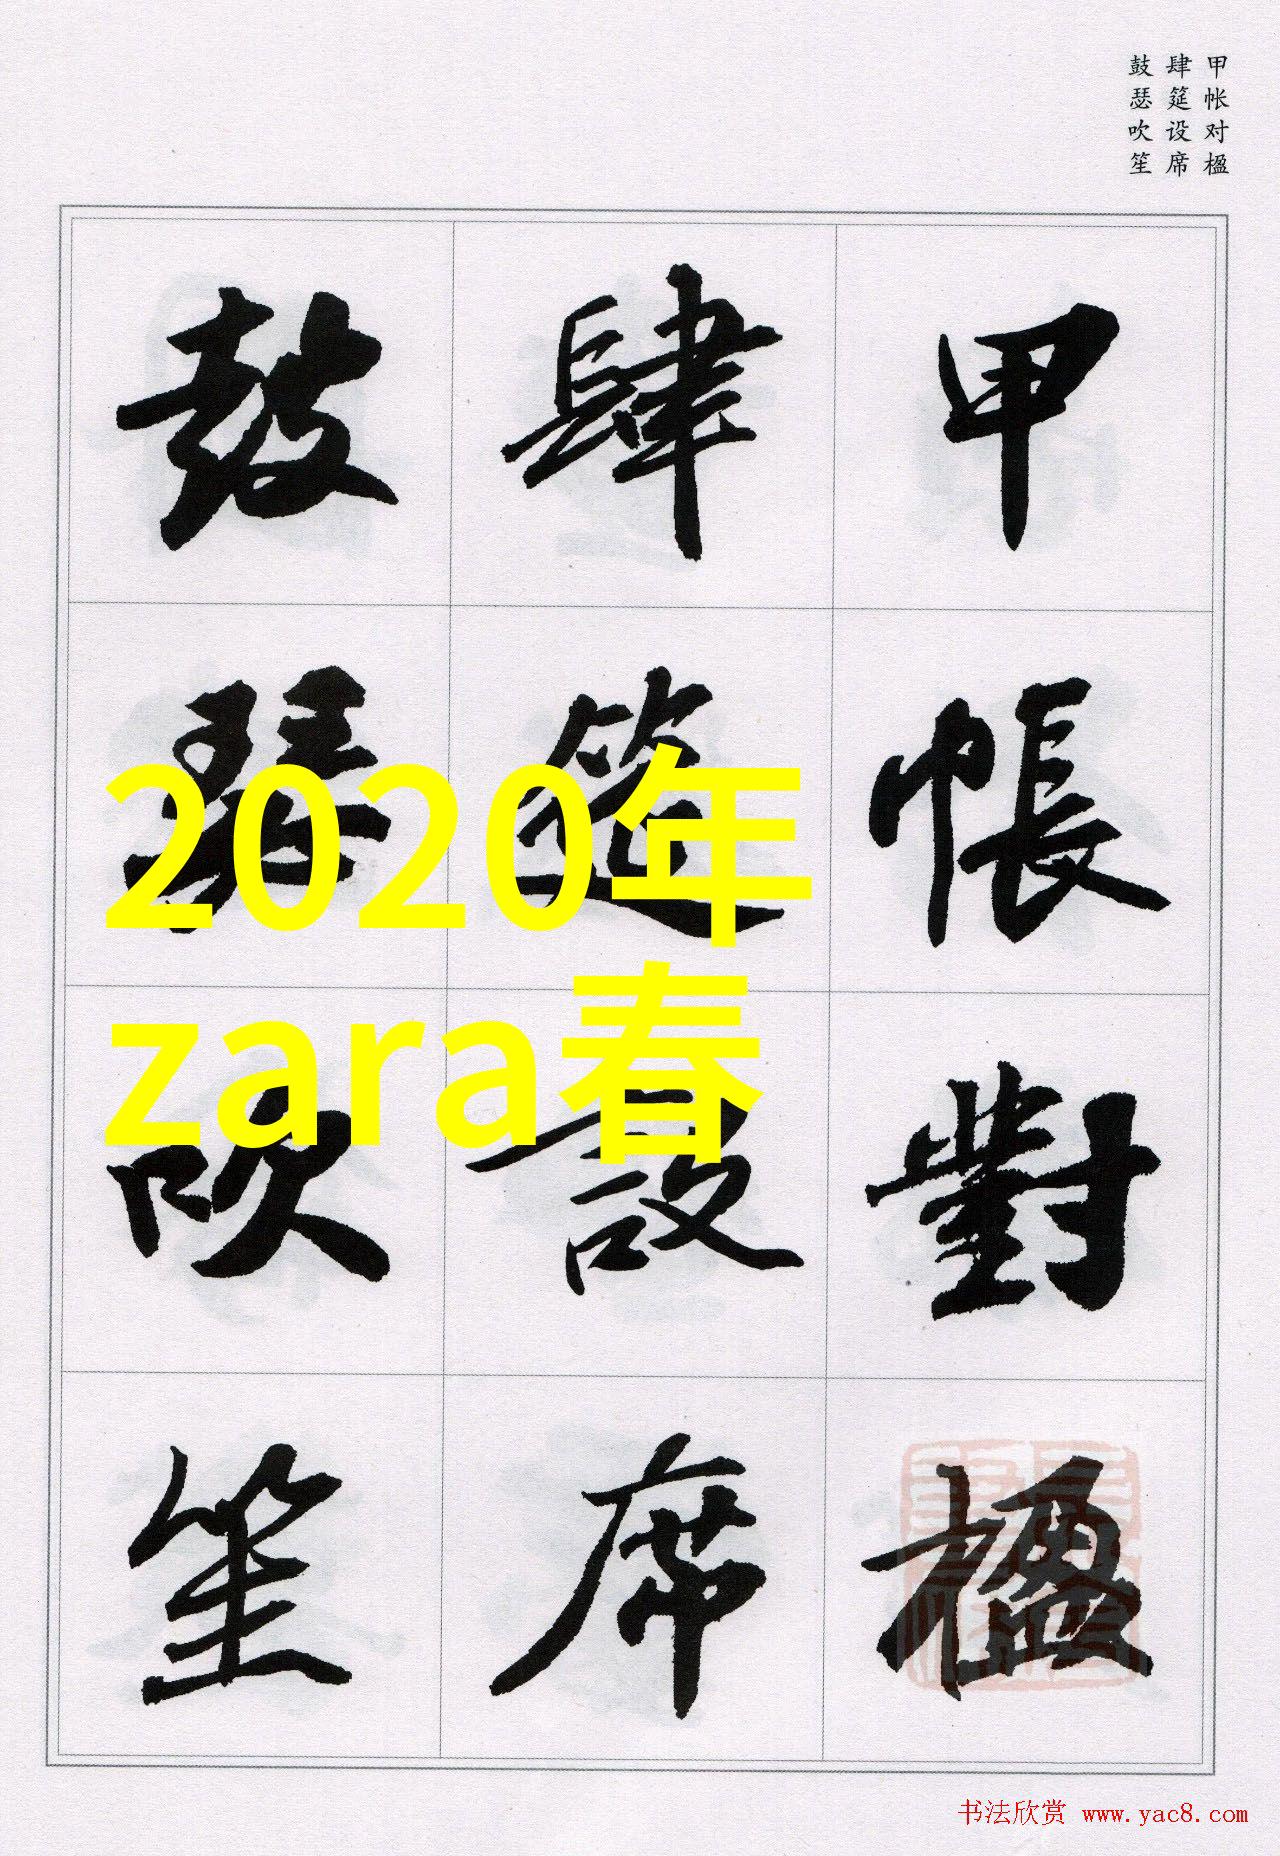 甲帐对楹
肆筵设席
鼓瑟吹笙
甲帳對楹
肆筵設席
鼓瑟吹笙
2020年
zara春
书法欣赏 www.yac8.com